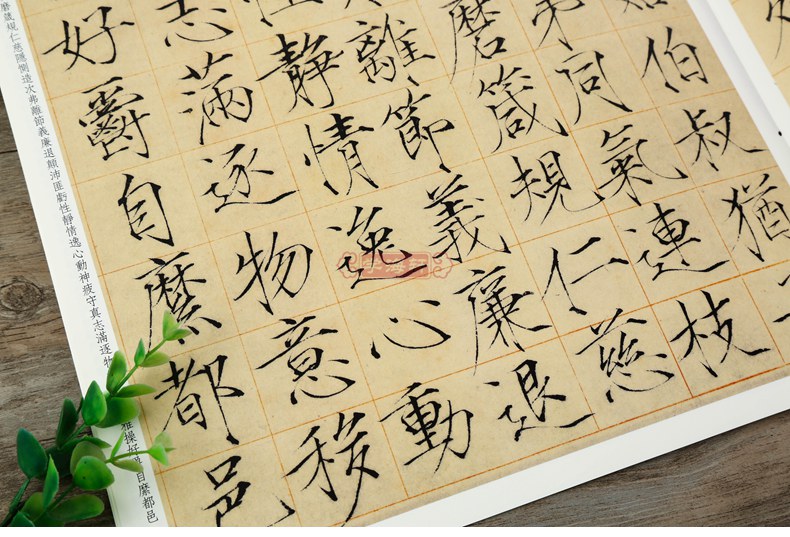 伯叔猶
弟同氣連枝
磨箴規仁慈
離節義廉退
靜情逸心動
志滿逐物意移
好爵自縻都邑
磨箴規仁慈隱惻造次弗離節義廉退顛沛匪虧性靜情逸心動神疲守真志滿逐物
雅操好 自縻都邑